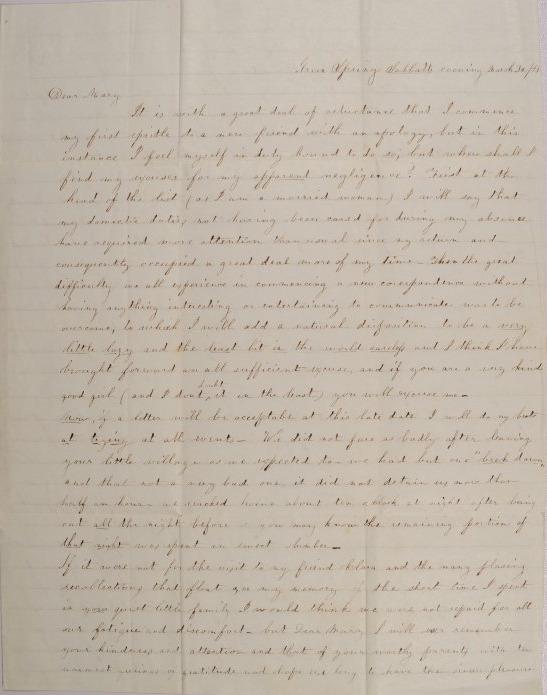 Green Spring Sabbath evening March
Dear Mary
It is with a great deal of reluctance that I commence
my first epistle to a new friend with an apology, but in this
instance I feel myself in duty bound to do so, but where shall I
find my excuses for my apparent negligence? First at the
head of the list (as I am a married woman) I will say that
my domestic duties not having been cared for during my absence
have required more attention than usual since my return and
consequently occupied a great deal more of my time - Then the great
difficulty we all experience in commencing a new correspondence without
having anything interesting or entertaining to communicate was to be
overcome, to which I will add a natural disposition to be a very
little lazy and the least bit in the world careless and I think I have
brought forward an all sufficient excuse, and if you are a very kind
good girl (and I don't doubt it in the least) you will excuse me -
Now, if a letter will be acceptable at this late date I will do my best
at trying at all events - We did not fare as badly after leaving
your little village as we expected to - we had but one "break down"
and that not a very bad one, it did not detain us more than
half an hour - we reached home about ten o'clock at night after being
out all the night before & you may know the remaining portion of
that night was spent in sweet slumber -
If it were not for the visit to my friend and the many pleasing
recollections that float over my memory of the short time I spent
in your quiet little family I would think we were not repaid for all
our fatigue and discomfort - but Dear Mary I will ever remember
your kindness and attention and that of your worthy parents with the
warmest of gratitude and hope ere long to have the pleasure